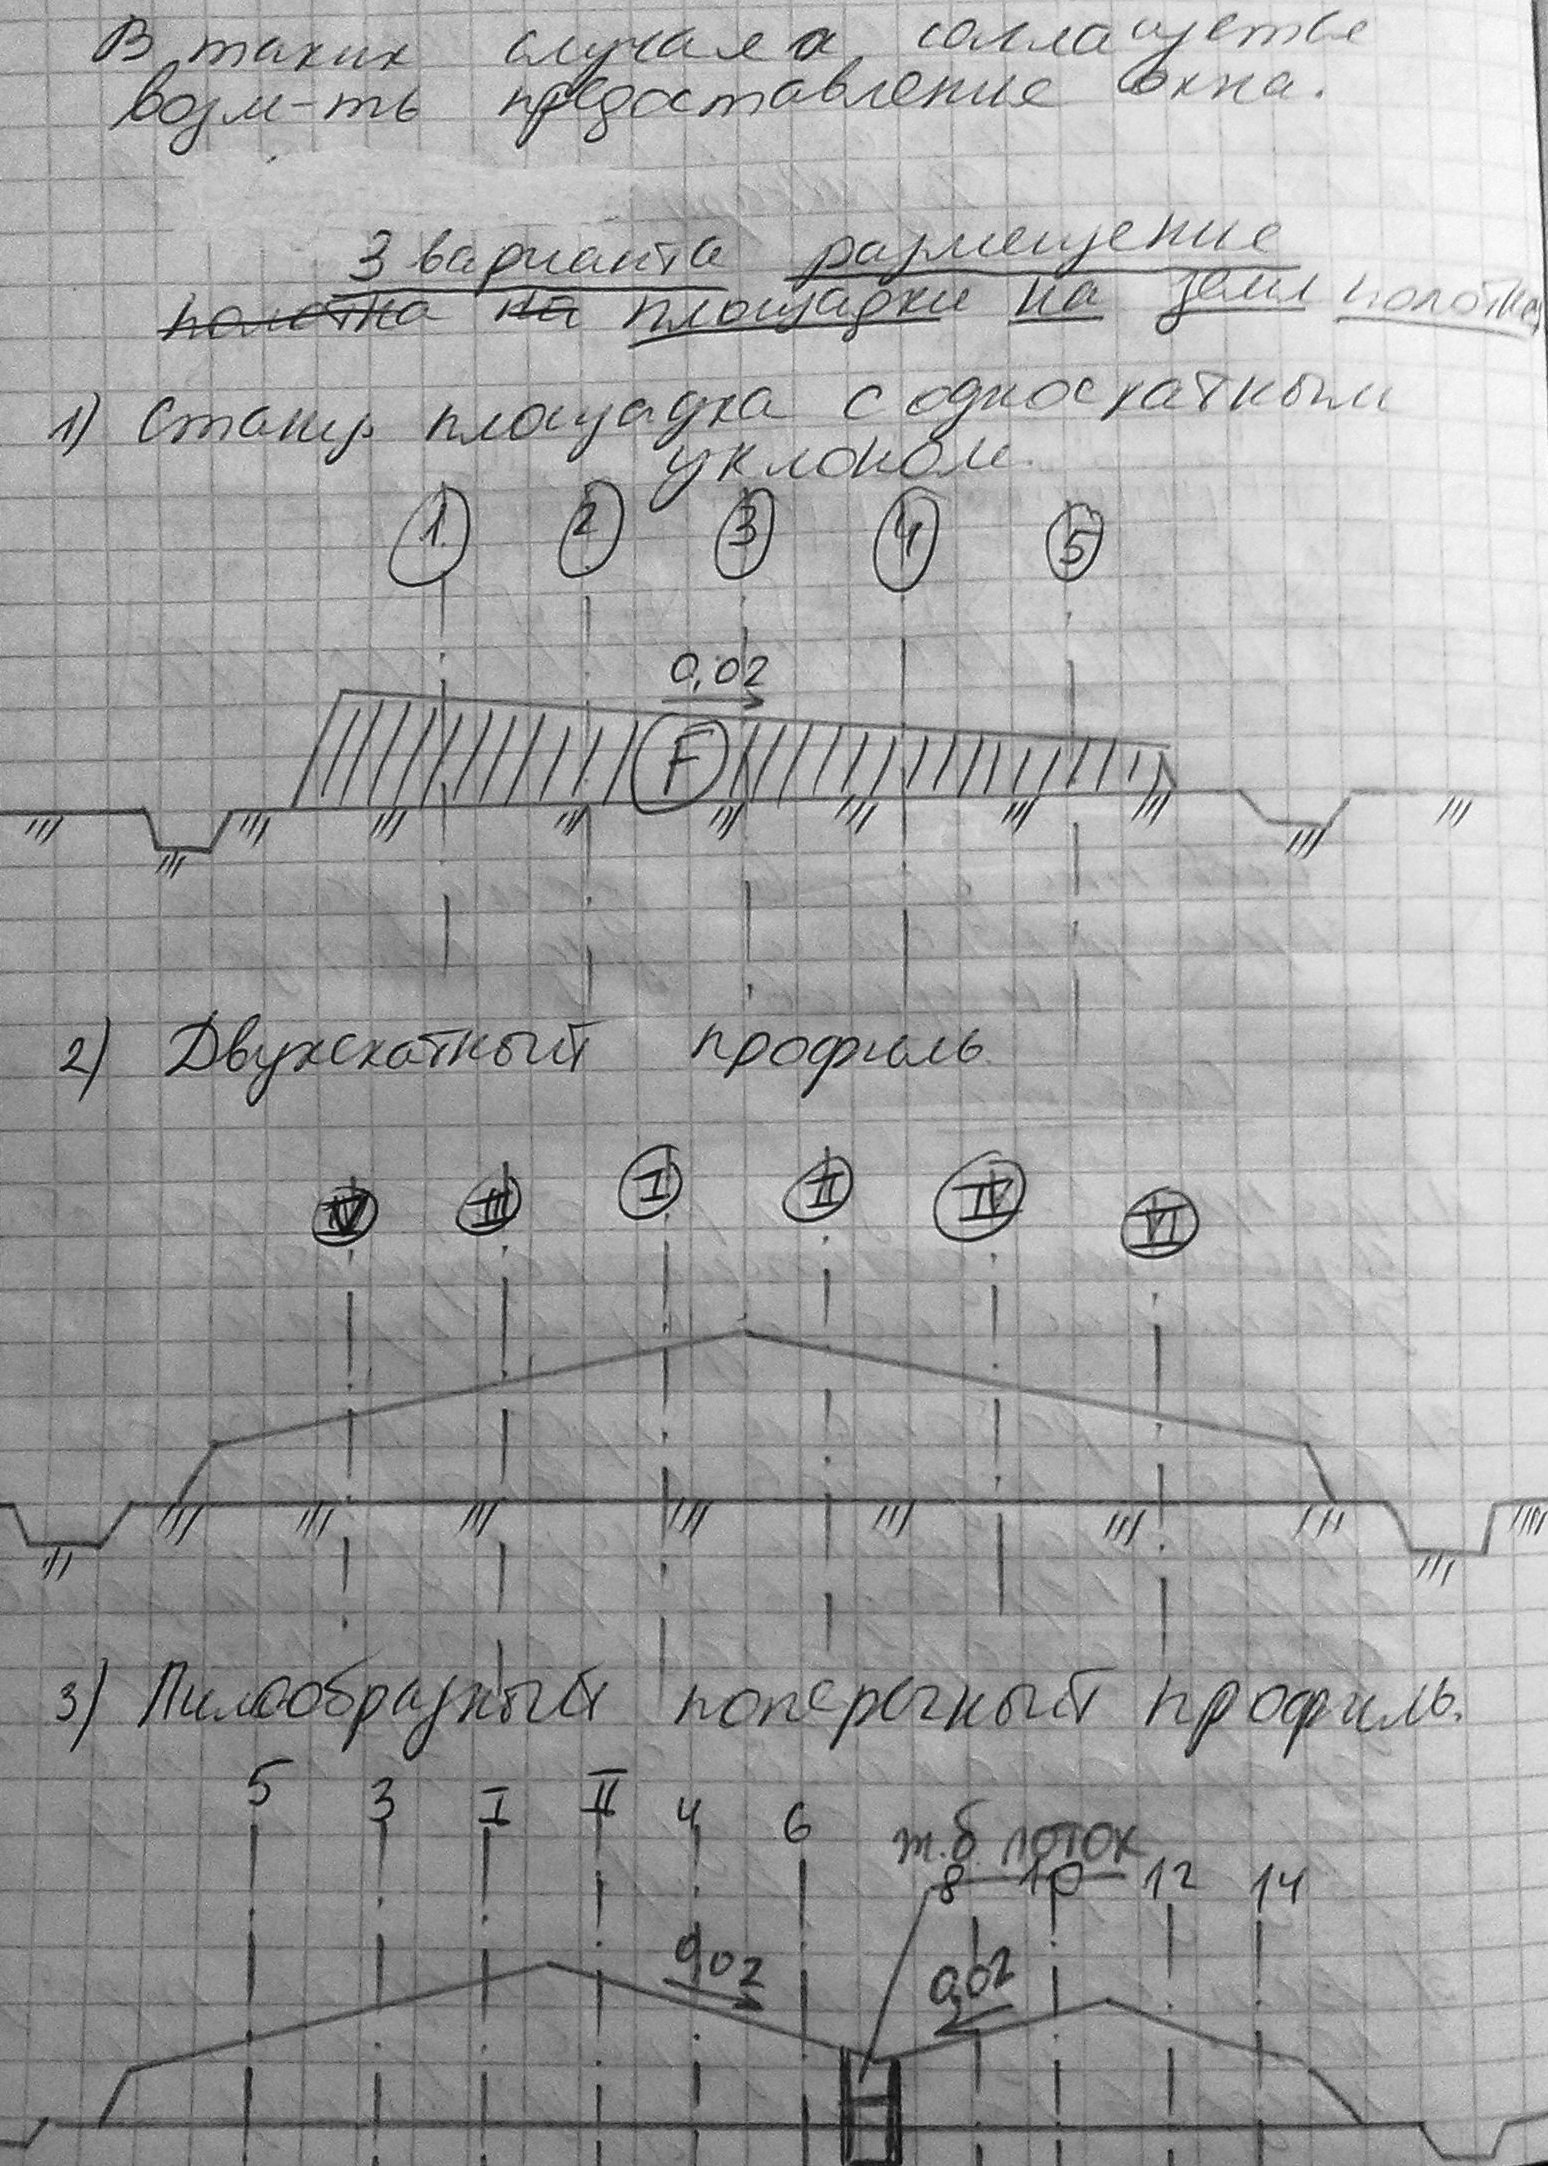 В таких случаях согласуется
возм-ть предоставление окна.
3 варианта размещение
полотна на площадки на земл полотна
1) Станц. площадка с односкатным
уклоном.
1 2 3 4 5
0,02
F
2) Двухскатный профиль
IV III I II IV VI
3) Пилообразный поперечный профиль.
5 3 I II 4 6
ж.б. лоток
8 10 12 14
0,02 0,02